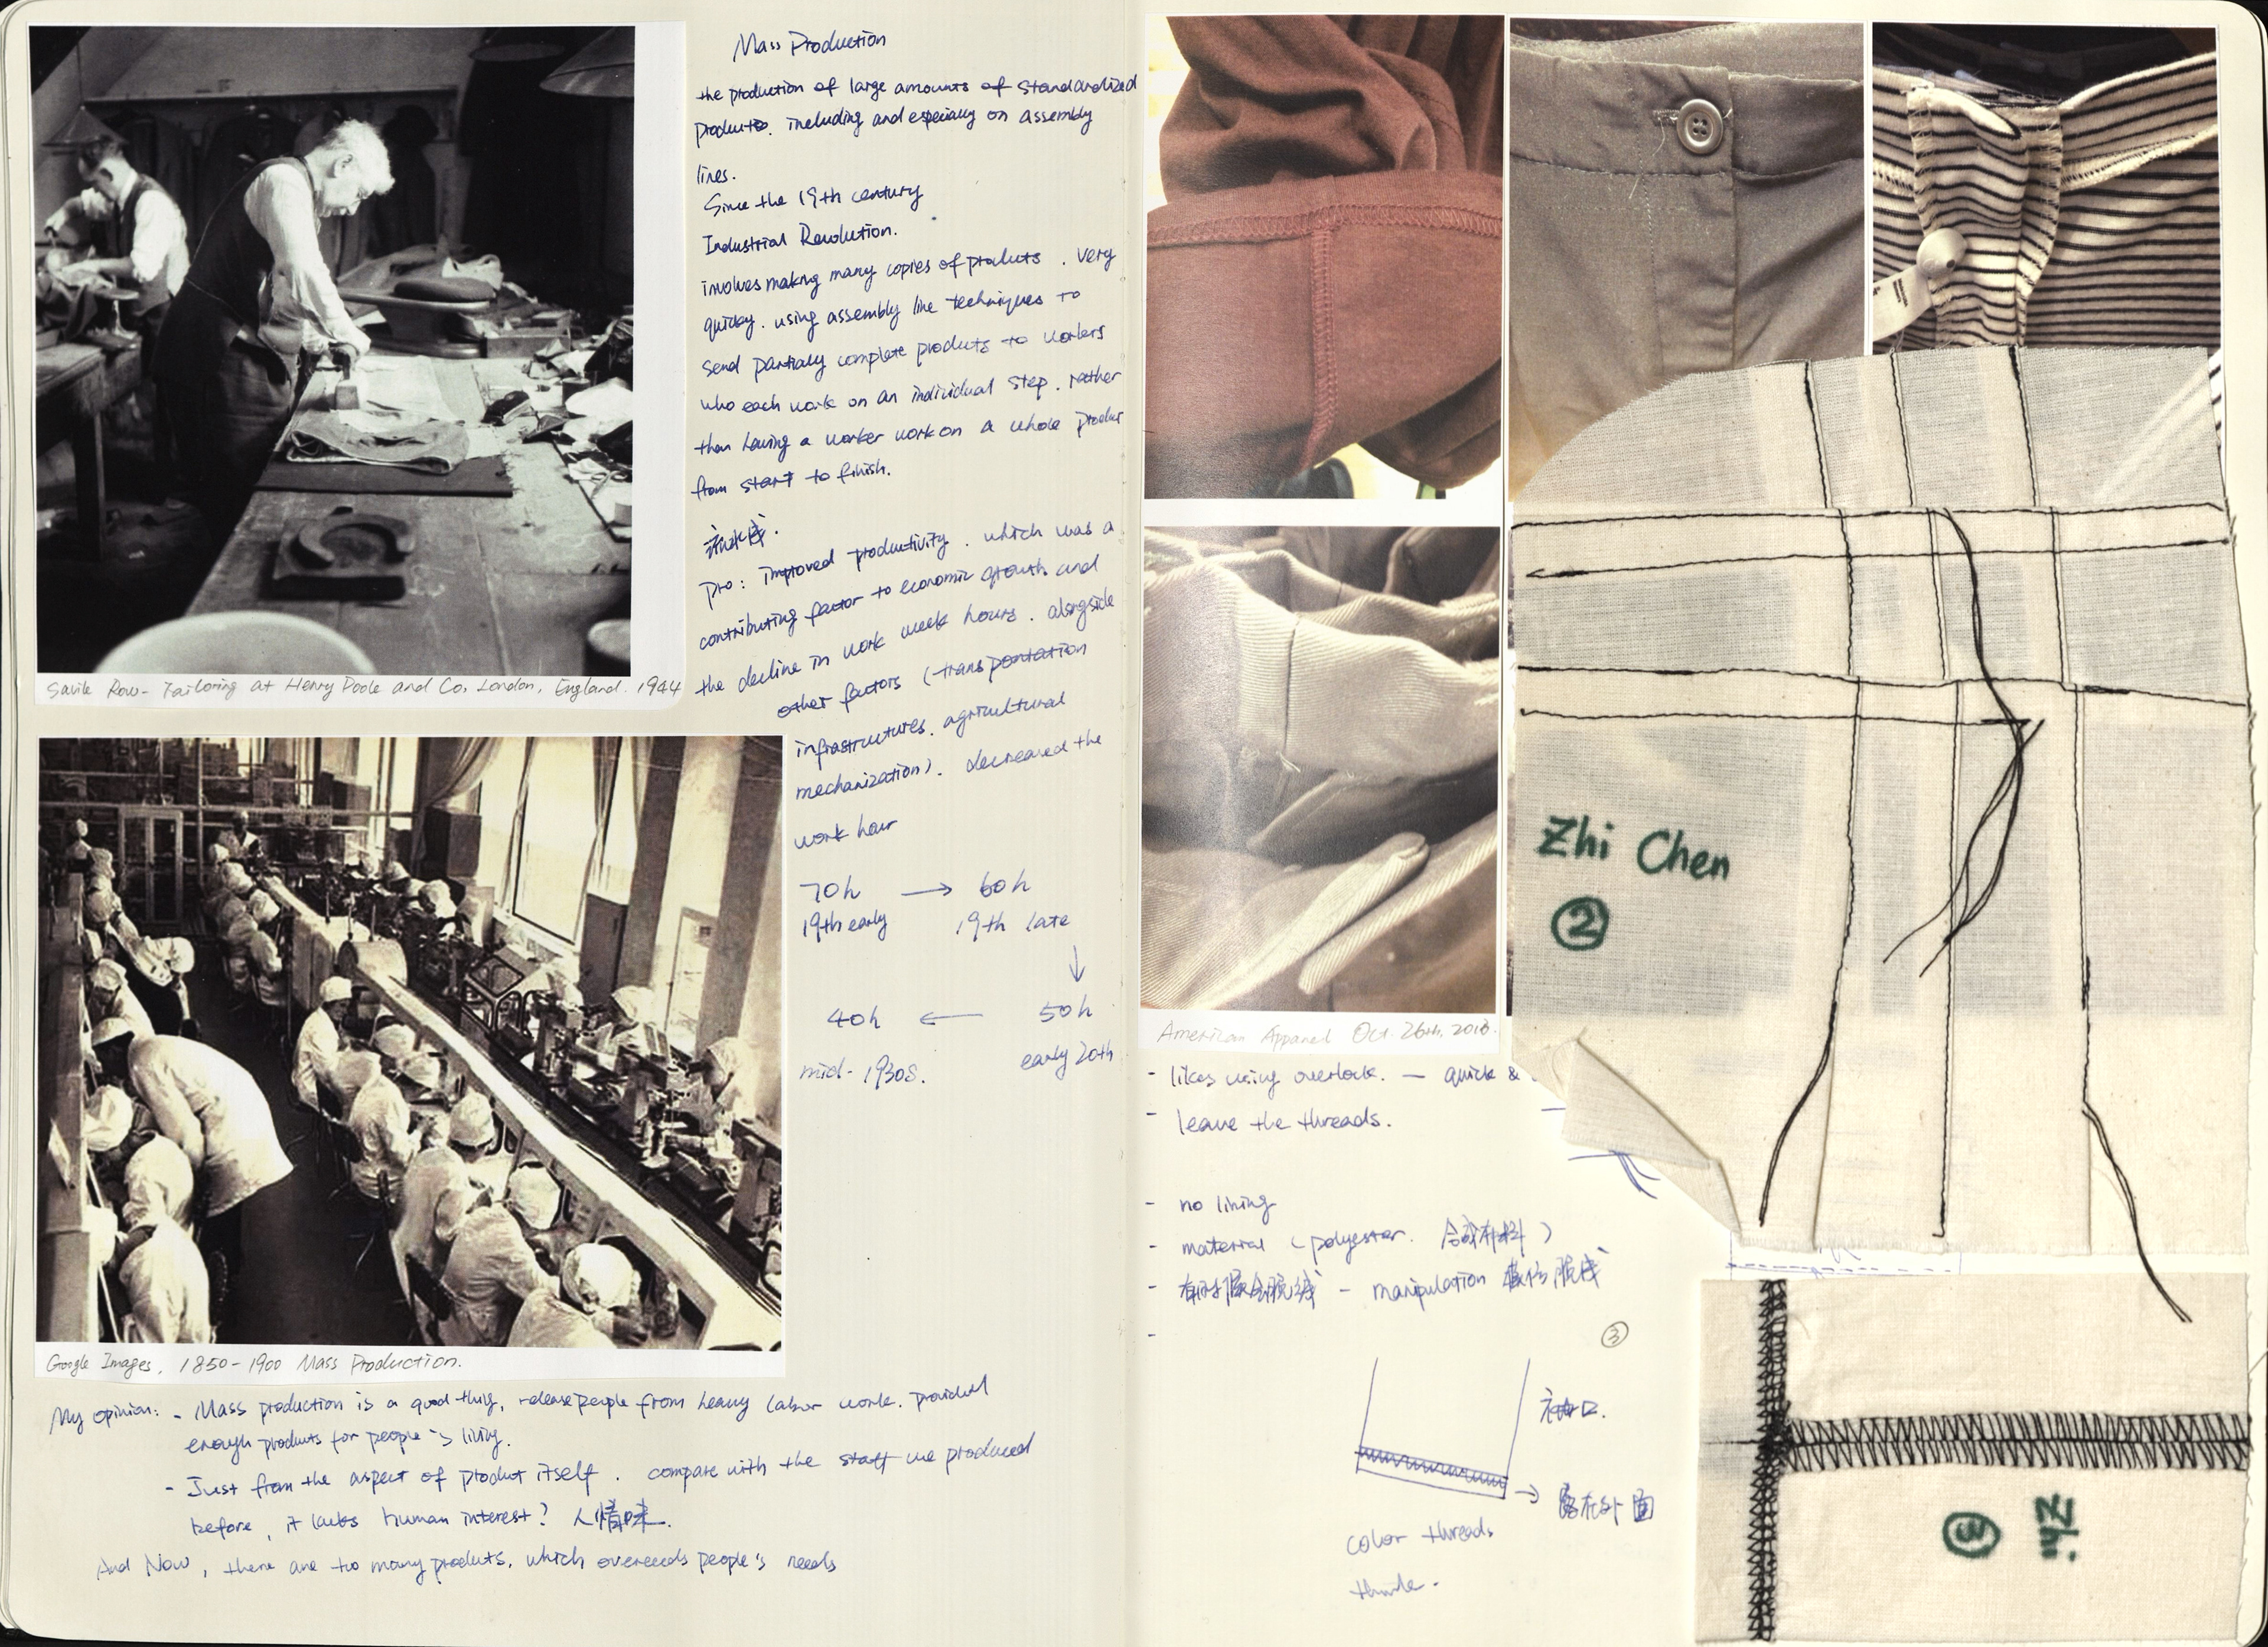 Mass Production
the production of large amounts of standardized
products. including and especially on assembly
lines.
Since the 19th century
Industrial Revolution.
involves making many copies of products. very
quickly. using assembly line techniques to
send partially complete products to workers
who each work on an individual step. rather
than having a worker work on a whole product
from start to finish.
流水线.
pro: improved productivity. which was a
contributing factor to economic growth and
the decline in work week hours. alongside
other factors (transportation
infrastructures. agricultural
mechanization). decreased the
work hour
70h → 60h
19th early 19th late
↓
40h ← 50h
mid-1930s. early 20th
Savile Row - Tailoring at Henry Poole and Co, London, England. 1944
Google Images. 1850-1900 Mass Production.
My opinion: - Mass production is a good thing, release people from heavy labor work. provided
enough products for people's living.
- Just from the aspect of product itself. compare with the staff we produced
before, it lacks human interest? 人情味.
And Now, there are too many products, which overeeds people's needs
American Apparel Oct. 26th, 2016.
- likes using overlock. — quick &
- leave the threads.
- no lining
- material (polyester. 合成布料)
- manipulation
-
③
袖口.
→ 露在外面
color threads
Zhi Chen
②
③
Zhi